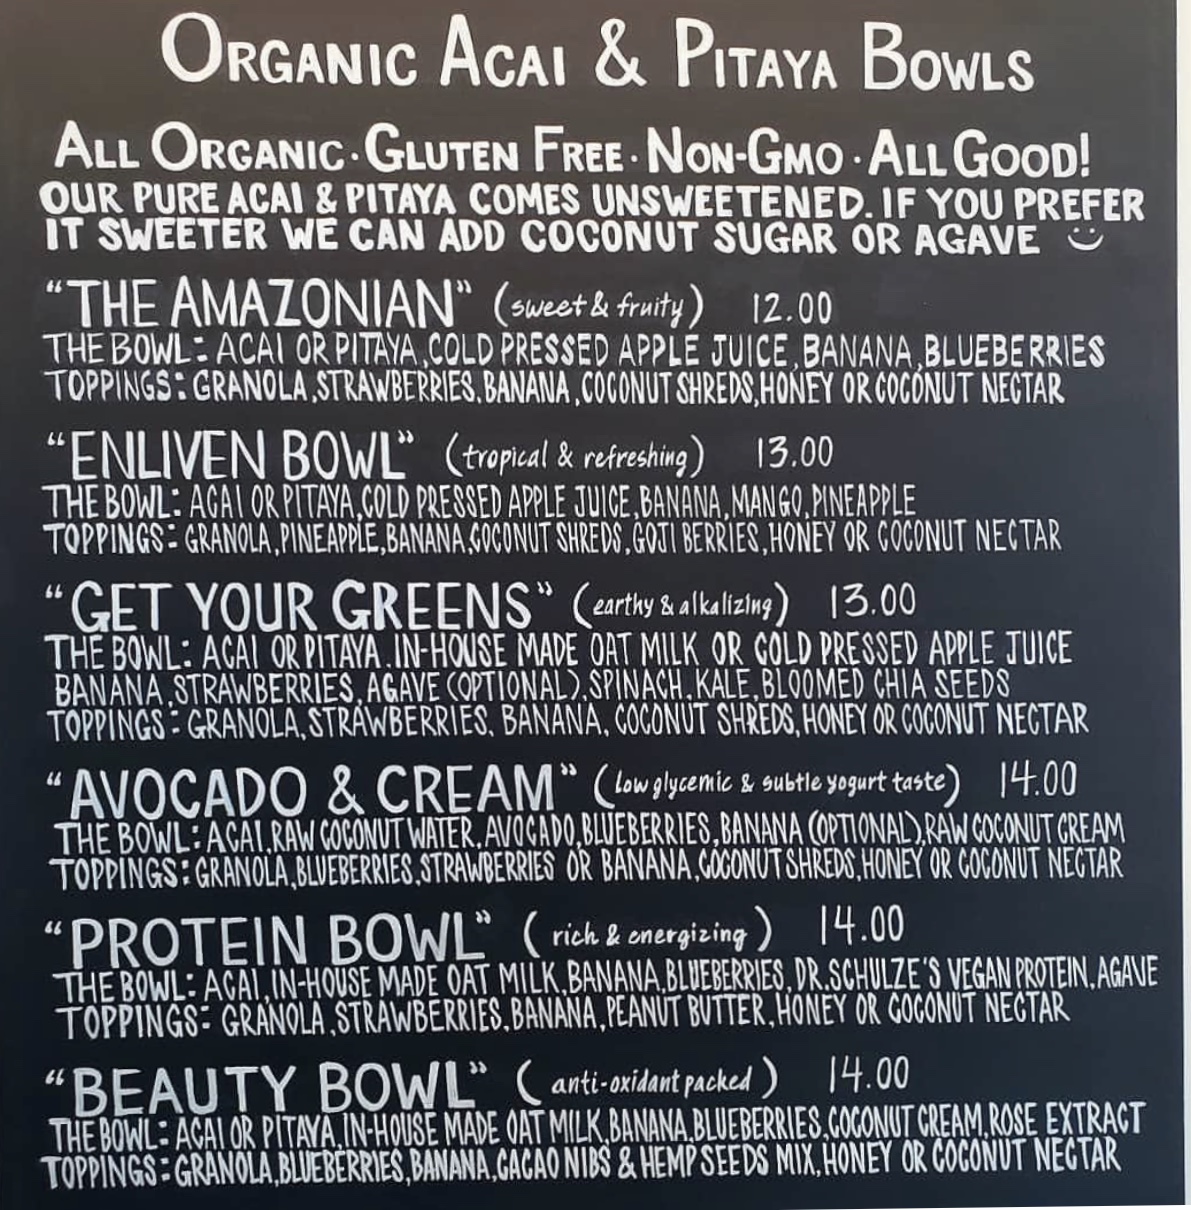 ORGANIC ACAI & PITAYA BOWLS
ALL ORGANIC · GLUTEN FREE · NON-GMO · ALL GOOD!
OUR PURE ACAI & PITAYA COMES UNSWEETENED. IF YOU PREFER
IT SWEETER WE CAN ADD COCONUT SUGAR OR AGAVE
"THE AMAZONIAN" (sweet & fruity) 12.00
THE BOWL: ACAI OR PITAYA, COLD PRESSED APPLE JUICE, BANANA, BLUEBERRIES
TOPPINGS: GRANOLA, STRAWBERRIES, BANANA, COCONUT SHREDS, HONEY OR COCONUT NECTAR
"ENLIVEN BOWL" (tropical & refreshing) 13.00
THE BOWL: ACAI OR PITAYA, COLD PRESSED APPLE JUICE, BANANA, MANGO, PINEAPPLE
TOPPINGS: GRANOLA, PINEAPPLE, BANANA, COCONUT SHREDS, GOJI BERRIES, HONEY OR COCONUT NECTAR
"GET YOUR GREENS" (earthy & alkalizing) 13.00
THE BOWL: ACAI OR PITAYA, IN-HOUSE MADE OAT MILK OR COLD PRESSED APPLE JUICE
BANANA, STRAWBERRIES, AGAVE (OPTIONAL), SPINACH, KALE, BLOOMED CHIA SEEDS
TOPPINGS: GRANOLA, STRAWBERRIES, BANANA, COCONUT SHREDS, HONEY OR COCONUT NECTAR
"AVOCADO & CREAM" (low glycemic & subtle yogurt taste) 14.00
THE BOWL: ACAI, RAW COCONUT WATER, AVOCADO, BLUEBERRIES, BANANA (OPTIONAL), RAW COCONUT CREAM
TOPPINGS: GRANOLA, BLUEBERRIES, STRAWBERRIES OR BANANA, COCONUT SHREDS, HONEY OR COCONUT NECTAR
"PROTEIN BOWL" (rich & energizing) 14.00
THE BOWL: ACAI, IN-HOUSE MADE OAT MILK, BANANA, BLUEBERRIES, DR. SCHULZE'S VEGAN PROTEIN, AGAVE
TOPPINGS: GRANOLA, STRAWBERRIES, BANANA, PEANUT BUTTER, HONEY OR COCONUT NECTAR
"BEAUTY BOWL" (anti-oxidant packed) 14.00
THE BOWL: ACAI OR PITAYA, IN-HOUSE MADE OAT MILK, BANANA, BLUEBERRIES, COCONUT CREAM, ROSE EXTRACT
TOPPINGS: GRANOLA, BLUEBERRIES, BANANA, CACAO NIBS & HEMP SEEDS MIX, HONEY OR COCONUT NECTAR